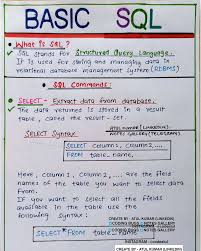 BASIC SQL
• What is SQL ?
✓ SQL stands for Structured Query Language.
✓ It is used for storing and managing data in
relational database management system (RDBMS)
• SQL Commands:
• SELECT - Extract data from database.
The data returned is stored in a result
table, called the result-set.
ATUL KUMAR (LINKEDIN)
NOTES GALLERY (TELEGRAM)
SELECT Syntax
SELECT column1, column2, ....
FROM table_name;
Here, column1, column2, .... are the field
names of the table you want to select data
from.
If you want to select all the fields
available in the table use the
following syntax :
CREATE BY - ATUL KUMAR (LINKEDIN)
SELECT * FROM table_name;
CREATE BY - ATUL KUMAR (LINKEDIN)